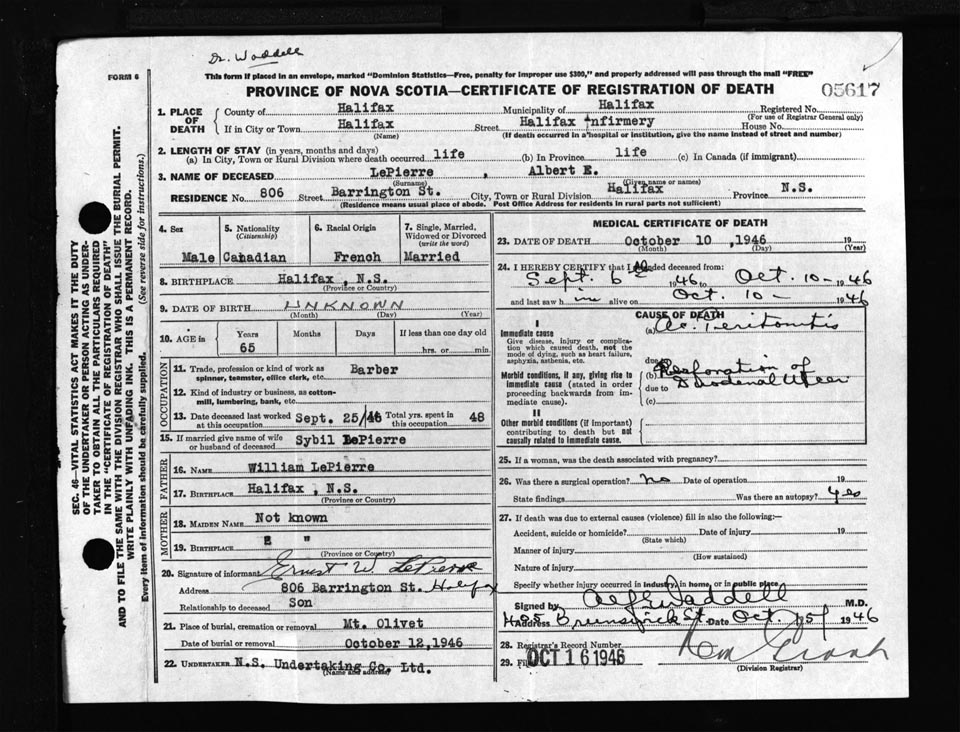 Dr. Waddell
FORM 6
This form if placed in an envelope, marked "Dominion Statistics—Free, penalty for improper use $300," and properly addressed will pass through the mail "FREE"
PROVINCE OF NOVA SCOTIA—CERTIFICATE OF REGISTRATION OF DEATH
05617
1. PLACE OF DEATH
County of Halifax Municipality of Halifax Registered No.
(For use of Registrar General only)
If in City or Town Halifax Street Halifax Infirmery House No.
(Name) (If death occurred in a hospital or institution, give the name instead of street and number)
2. LENGTH OF STAY (in years, months and days)
(a) In City, Town or Rural Division where death occurred life (b) In Province life (c) In Canada (if immigrant)
3. NAME OF DECEASED LePierre , Albert E.
(Surname) (Given name or names)
RESIDENCE No. 806 Street Barrington St. City, Town or Rural Division Halifax Province N.S.
(Residence means usual place of abode. Post Office Address for residents in rural parts not sufficient)
4. Sex
Male
5. Nationality
(Citizenship)
Canadian
6. Racial Origin
French
7. Single, Married, Widowed or Divorced
(write the word)
Married
8. BIRTHPLACE Halifax, N.S.
(Province or Country)
9. DATE OF BIRTH UNKNOWN
(Month) (Day) (Year)
10. AGE in
Years Months Days If less than one day old
65 hrs. or min.
OCCUPATION
11. Trade, profession or kind of work as Barber
spinner, teamster, office clerk, etc.
12. Kind of industry or business, as cotton-
mill, lumbering, bank, etc.
13. Date deceased last worked Sept. 25/46 Total yrs. spent in 48
at this occupation this occupation
15. If married give name of wife Sybil LePierre
or husband of deceased
FATHER
16. NAME William LePierre
17. BIRTHPLACE Halifax, N.S.
(Province or Country)
MOTHER
18. MAIDEN NAME Not known
19. BIRTHPLACE " "
(Province or Country)
20. Signature of informant Ernest W. LePierre
Address 806 Barrington St. Halifax
Relationship to deceased Son
21. Place of burial, cremation or removal Mt. Olivet
Date of burial or removal October 12, 1946
22. UNDERTAKER N.S. Undertaking Co. Ltd.
(Name and address)
MEDICAL CERTIFICATE OF DEATH
23. DATE OF DEATH October 10 ,1946 19
(Month) (Day) (Year)
24. I HEREBY CERTIFY that I attended deceased from:
Sept. 6 1946 to Oct. 10 - 1946
and last saw him alive on Oct. 10 - 1946
CAUSE OF DEATH
I
Immediate cause (a) Ac. Peritonitis
Give disease, injury or complica-
tion which caused death, not the
mode of dying, such as heart failure,
asphyxia, asthenia, etc.
due to
Morbid conditions, if any, giving rise to (b) Perforation of
immediate cause (stated in order due to Duodenal Ulcer
proceeding backwards from im-
mediate cause). (c)
II
Other morbid conditions (if important)
contributing to death but not
causally related to immediate cause.
25. If a woman, was the death associated with pregnancy?
26. Was there a surgical operation? no Date of operation 19
State findings Was there an autopsy? yes
27. If death was due to external causes (violence) fill in also the following:—
Accident, suicide or homicide? Date of injury 19
(State which)
Manner of injury
(How sustained)
Nature of injury
Specify whether injury occurred in industry, in home, or in public place
Signed by Waddell M.D.
Address Brunswick St. Date Oct. 15/ 1946
28. Registrar's Record Number
29. Filed OCT 16 1946
(Division Registrar)
SEC. 46—VITAL STATISTICS ACT MAKES IT THE DUTY
OF THE UNDERTAKER OR PERSON ACTING AS UNDER-
TAKER TO OBTAIN ALL THE PARTICULARS REQUIRED
IN THE "CERTIFICATE OF REGISTRATION OF DEATH"
AND TO FILE THE SAME WITH THE DIVISION REGISTRAR WHO SHALL ISSUE THE BURIAL PERMIT.
WRITE PLAINLY WITH UNFADING INK. THIS IS A PERMANENT RECORD.
Every item of information should be carefully supplied. (See reverse side for instructions.)